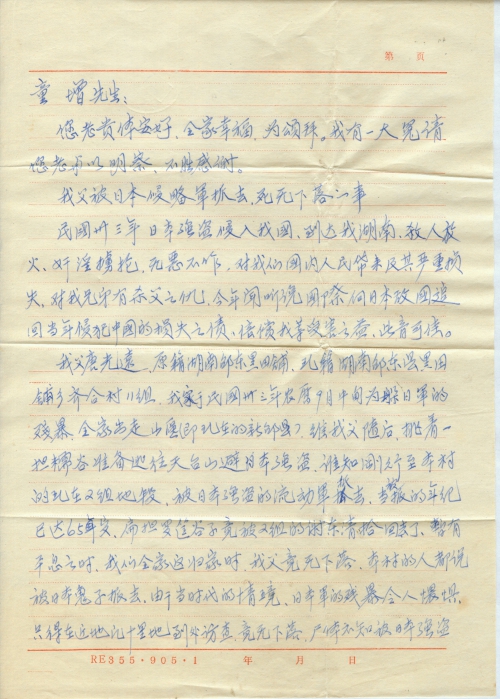 第 页
童 增先生:
您老贵体安好,全家幸福,为颂拜。我有一大冤请
您老予以明察,不胜感谢。
我父被日本侵略军抓去,死无下落一事
民国卅三年日本强盗侵入我国,到达我湖南,杀人放
火、奸淫掳抢,无恶不作,对我们国内人民带来及其严重损
失,对我兄弟有杀父之仇,今年闻听说国际向日本政国追
回当年侵犯中国的损失之债,偿我等受害之益,此音可信。
我父唐光远 原籍湖南邵东黑田铺,现籍湖南邵东县黑田
铺乡齐合村11组,我家于民国卅三年农历9月中间为躲日军的
残暴全家出走山区(即现在的新邵县),维我父随后,挑着一
担稻谷准备逃往天台山避日本强盗,谁知刚行至本村
的现在2组地段,被日本强盗的流动军 去,当 的年纪
已达65岁,肩担箩筐谷子竟被2组的谢东青拾回去了,暂有
平息之时,我们全家返归家时,我父竟无下落,本村的人都说
被日本鬼子抓去,由于当时代的情境,日本军的残暴令人爆惧
只得在近地几十里地到处访查,竟无下落,尸体不知被日本强盗
RE355·905·1 年 月 日